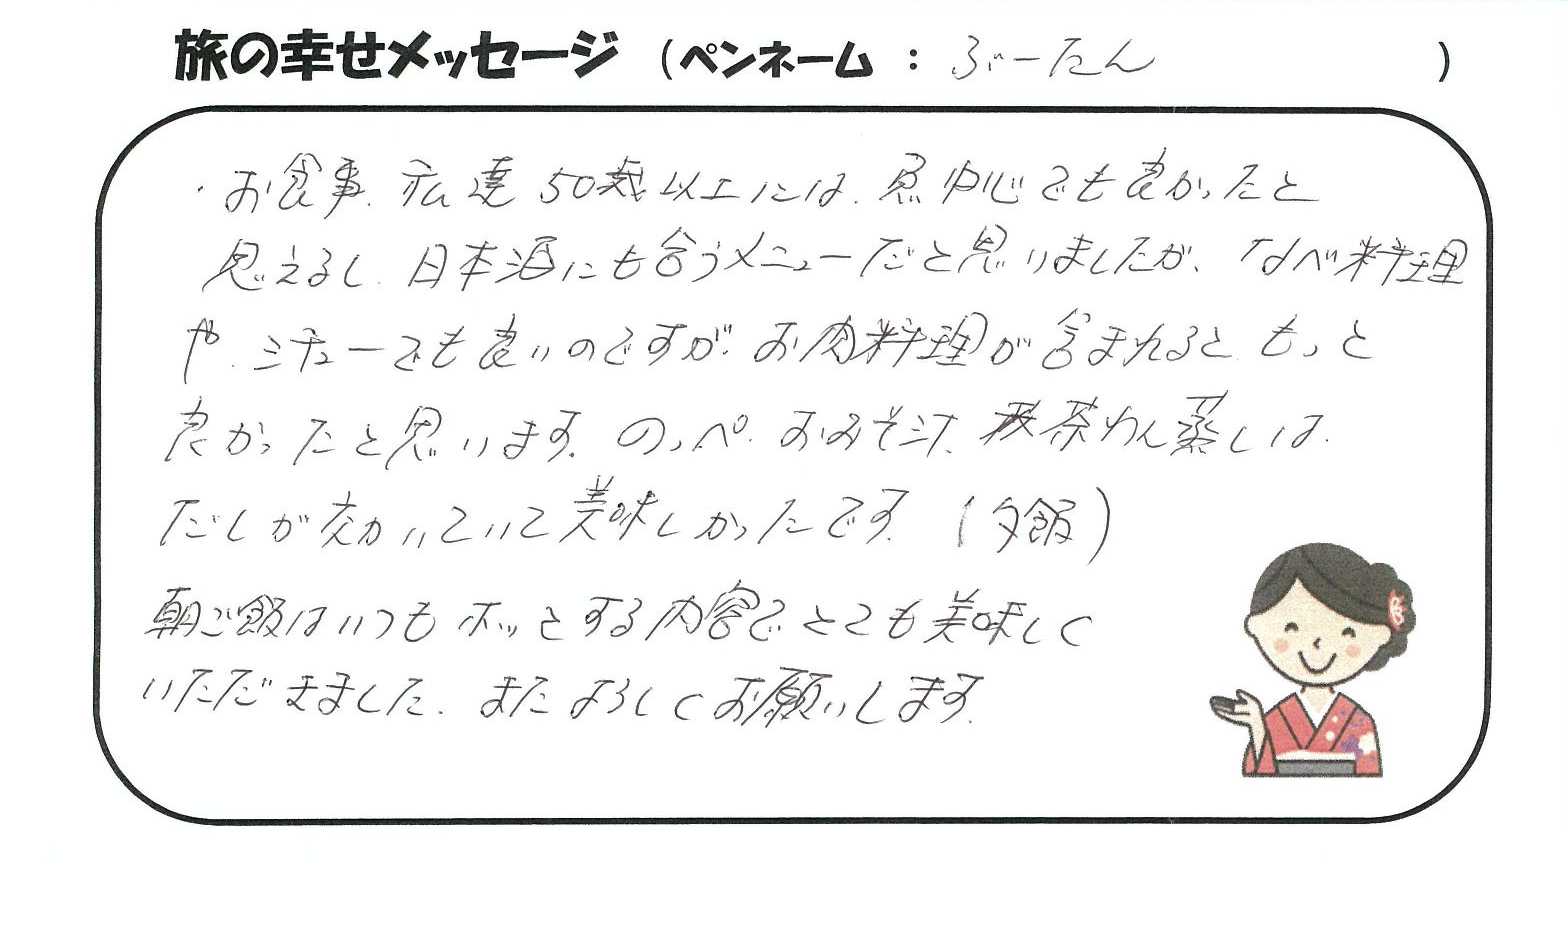 旅の幸せメッセージ (ペンネーム : ぶーたん )
・お食事、私達50歳以上には、魚中心でも良かったと
思えるし、日本酒にも合うメニューだと思いましたが、なべ料理
や、シチューでも良いのですが、お肉料理が含まれると、もっと
良かったと思います。のっぺ、おみそ汁、茶わん蒸しは、
だしが効いていて美味しかったです。(夕飯)
朝ご飯はいつもホッとする内容でとても美味しく
いただきました。またよろしくお願いします。